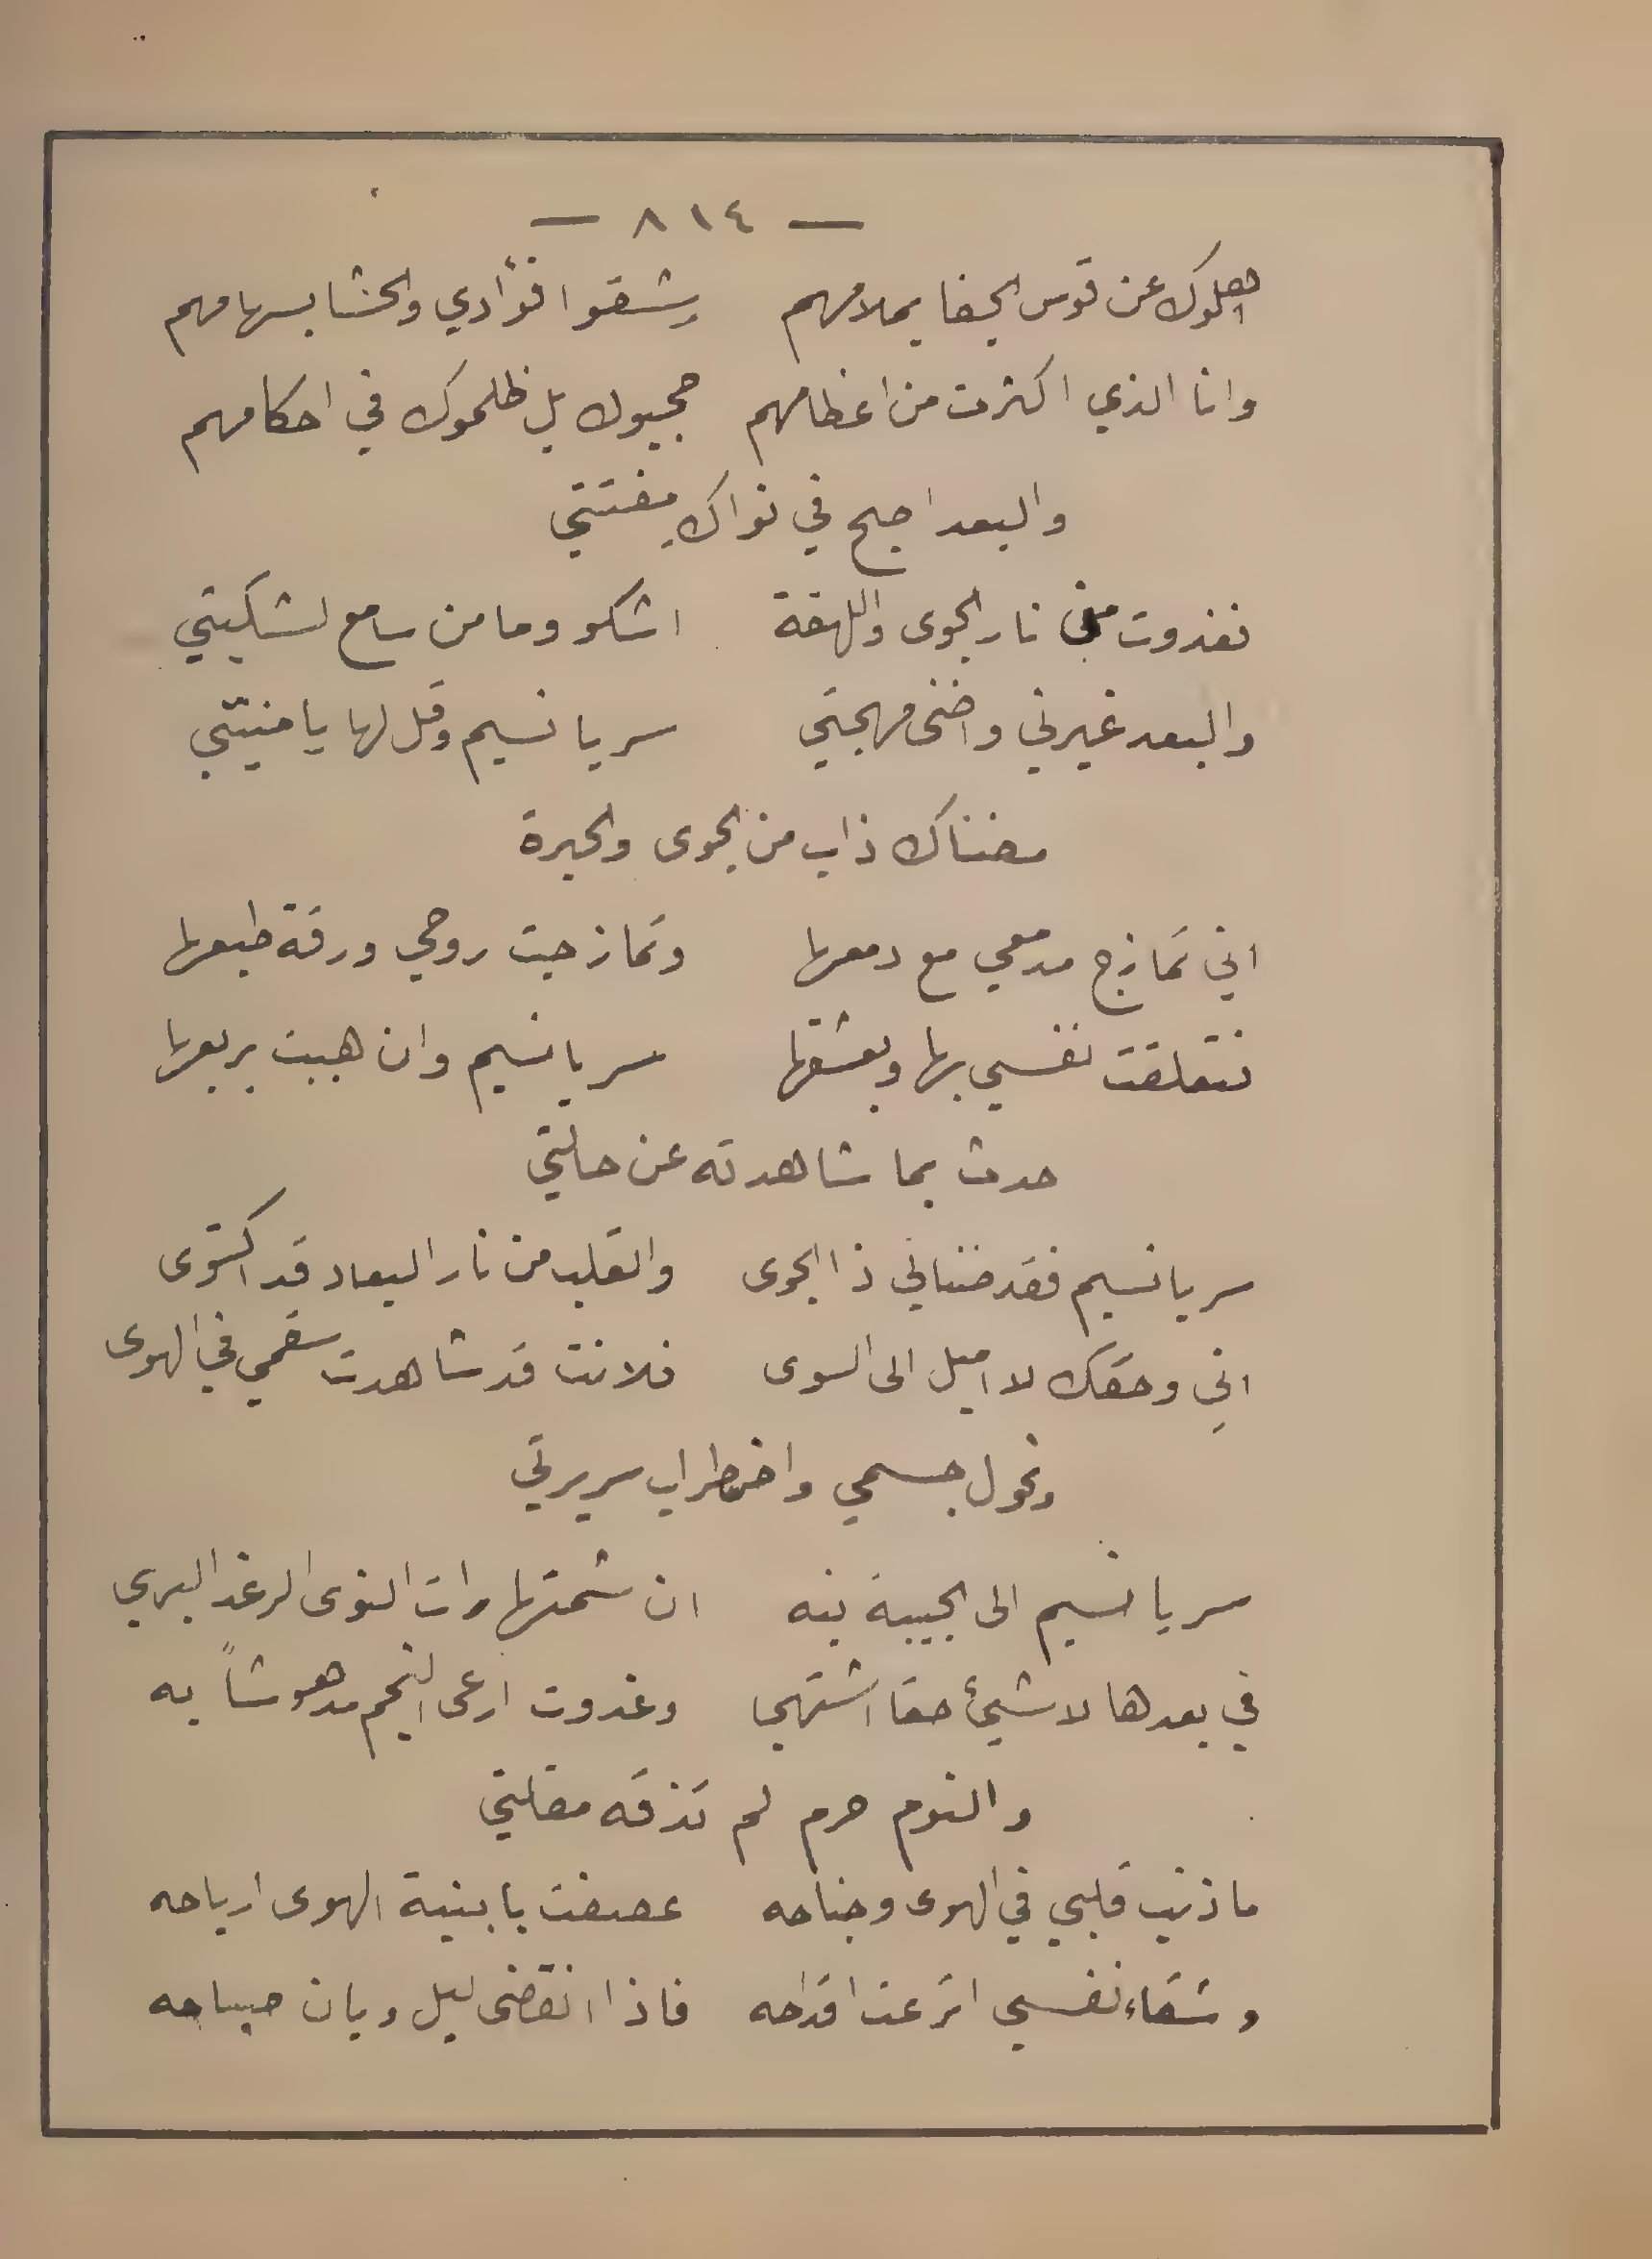 — ٨١٤ —
عن قوس الجفا بملامهم رشقوا فؤادي والحشا بسهامهم
وانا الذي اكثرت من اعظامهم حجبوك بل ظلموك في احكامهم
والبعد اجج في نواك
فغدوت من نار الجوى واللهفة اشكو وما من سامع لشكيتي
والبعد غيرني واضنى مهجتي سر يا نسيم وقل لها يا منيتي
مضناك ذاب من الجوى والحيرة
اني تمازج مدمعي مع دمعها وتمازجت روحي ورقة طبعها
فتعلقت نفسي بها وبعشقها سر يا نسيم وان هببت بربعها
حدث بما شاهدته عن حالتي
سر يا نسيم فقد ضناني ذا الجوى والقلب من نار البعاد قد اكتوى
اني وحقك لا اميل الى السوى فلانت قد شاهدت سقمي في الهوى
ونحول جسمي واضطراب سريرتي
سر يا نسيم الى الحبيبة نبه ان شمتها رات النوى الرغد البهي
في بعدها لا شيئ حقا اشتهي وغدوت ارعى النجم مدهوشاً به
والنوم حرم لم تذقه مقلتي
ما ذنب قلبي في الهوى وجناحه عصفت يا بنية الهوى ارياحه
وشقاء نفسي اترعت اقداحه فاذا انقضى ليل وبان صباحه